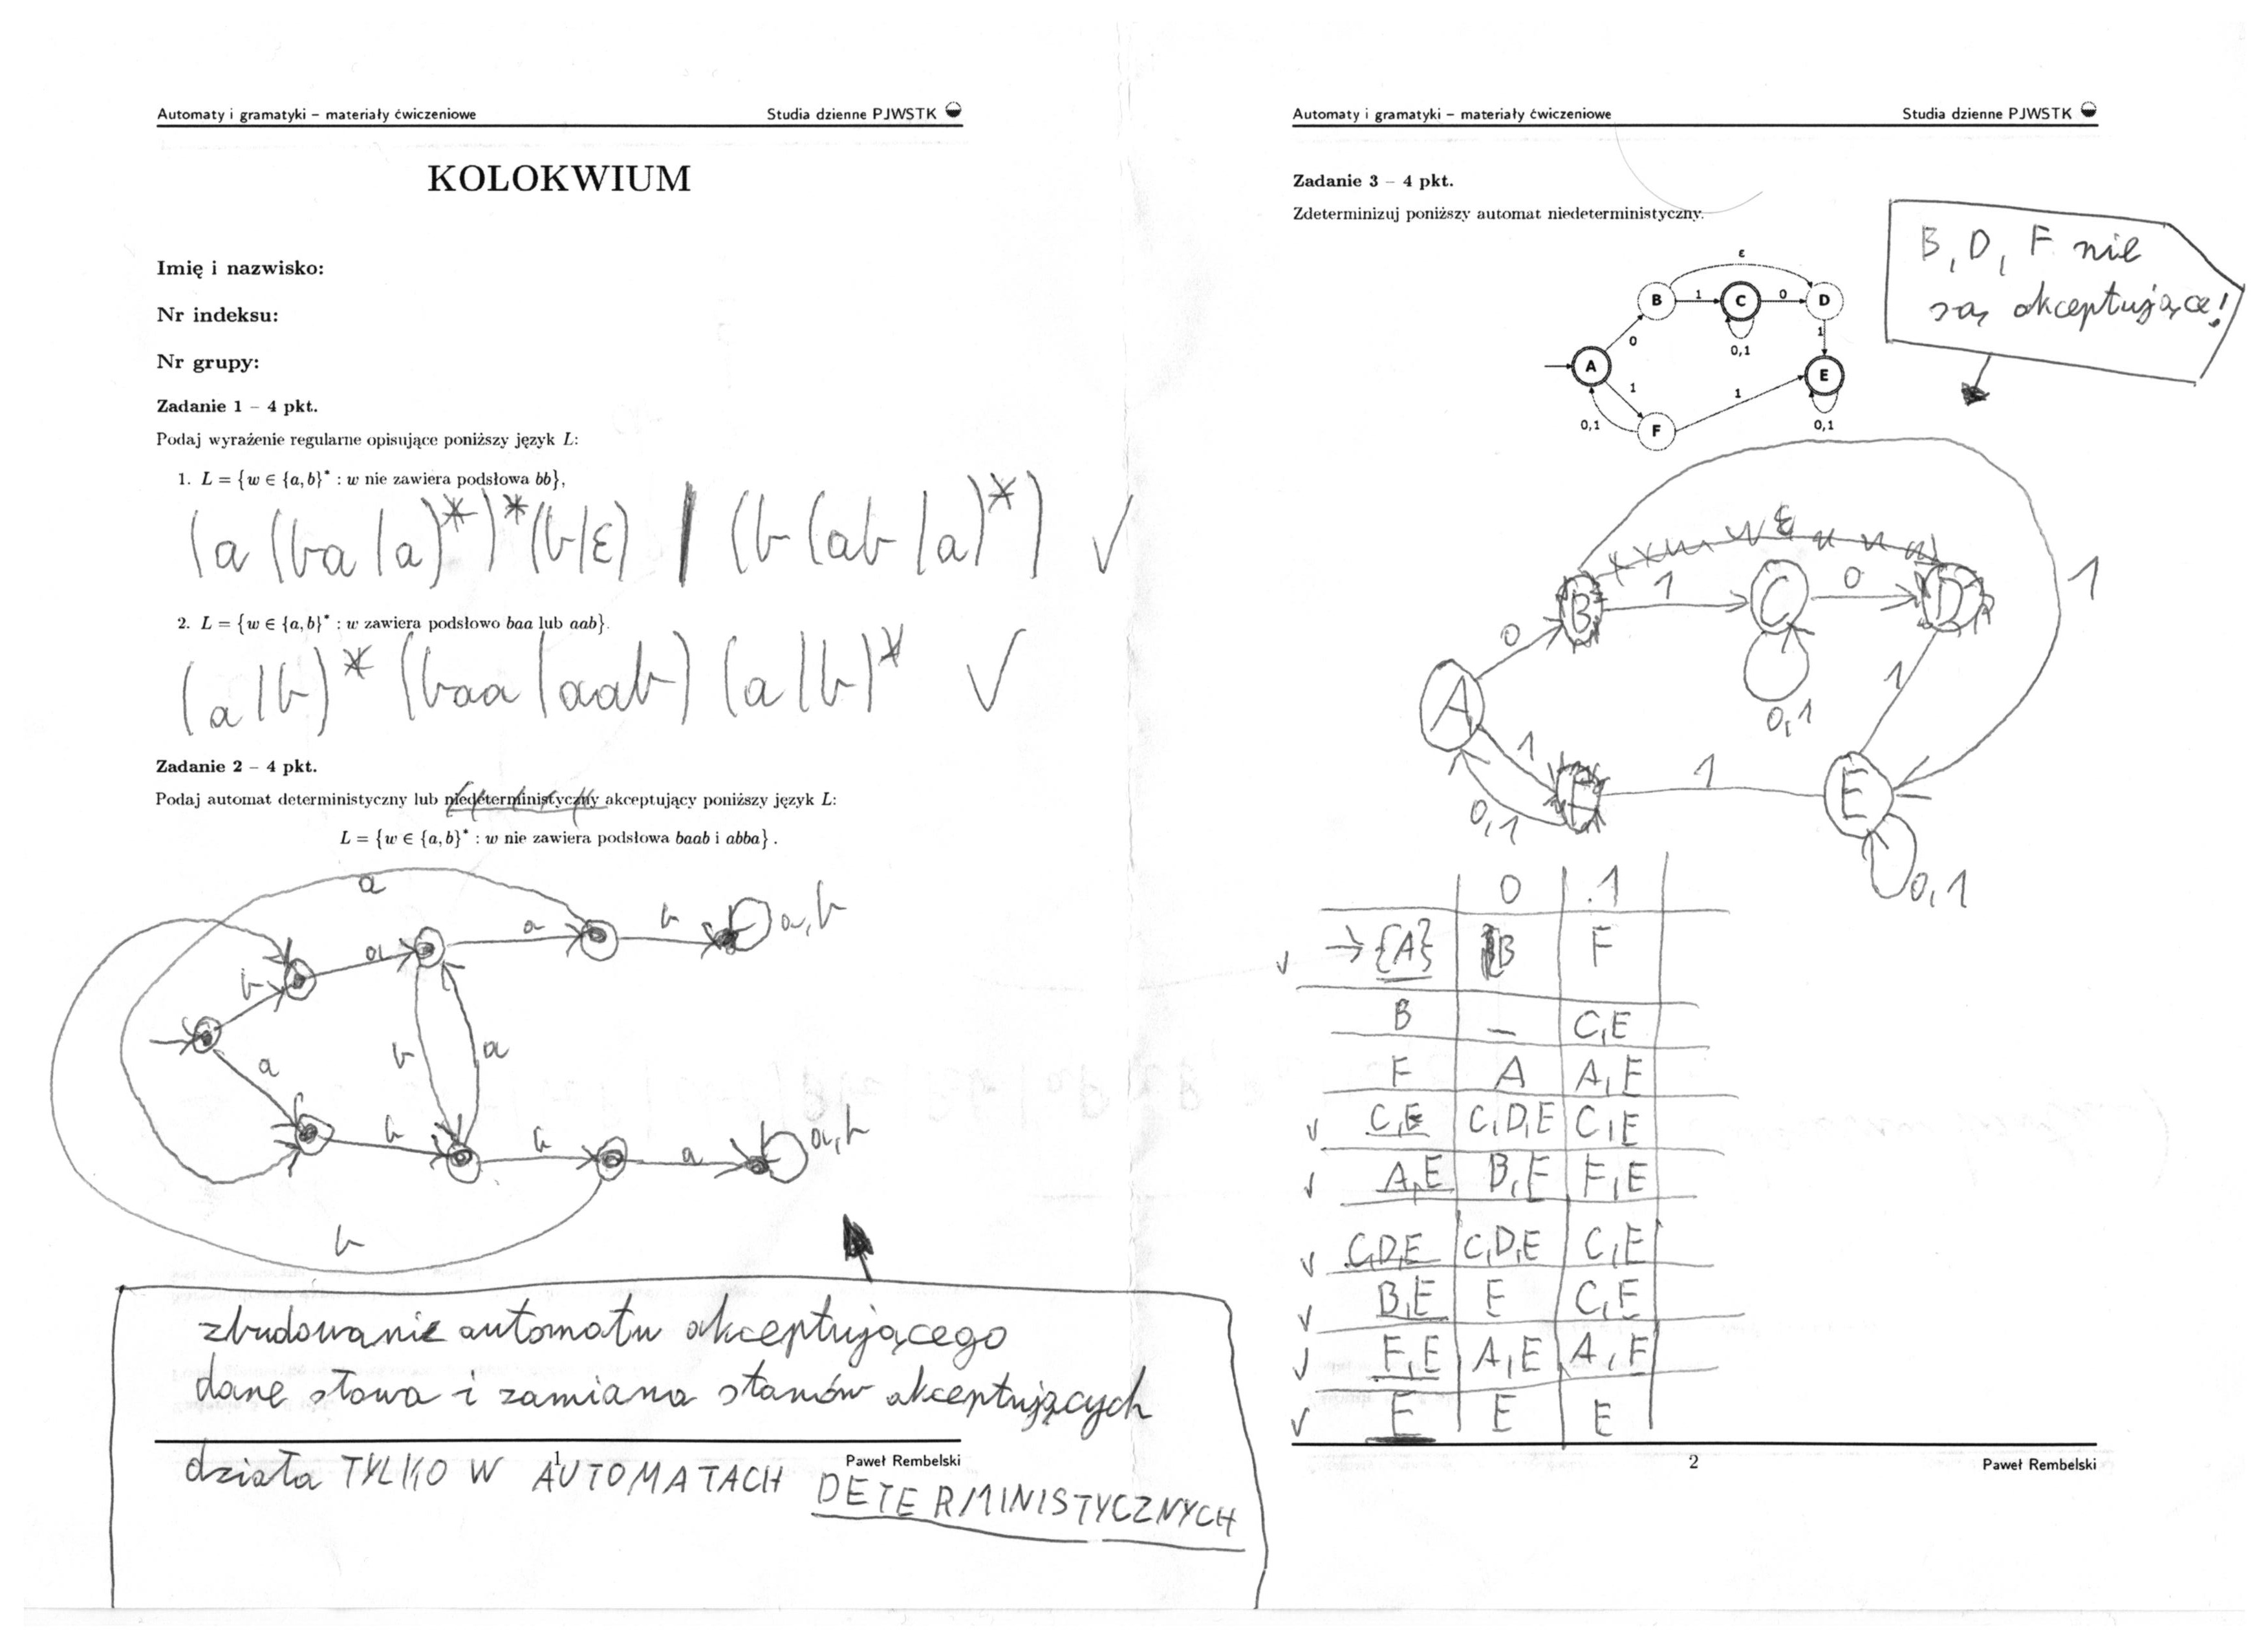 Automaty i gramatyki – materiały ćwiczeniowe Studia dzienne PJWSTK
KOLOKWIUM
Imię i nazwisko:
Nr indeksu:
Nr grupy:
Zadanie 1 – 4 pkt.
Podaj wyrażenie regularne opisujące poniższy język L:
1. L = {w ∈ {a, b}* : w nie zawiera podsłowa bb},
(a (ba | a)*)* (b|ε) | (b (ab | a)*) ✓
2. L = {w ∈ {a, b}* : w zawiera podsłowo baa lub aab}.
(a|b)* (baa | aab) (a|b)* ✓
Zadanie 2 – 4 pkt.
Podaj automat deterministyczny lub niedeterministyczny akceptujący poniższy język L:
L = {w ∈ {a, b}* : w nie zawiera podsłowa baab i abba} .
a
b a a b a,b
b a
a b b a a,b
b
zbudowanie automatu akceptującego
dane słowa i zamiana stanów akceptujących
działa TYLKO W AUTOMATACH DETERMINISTYCZNYCH
1
Paweł Rembelski
Automaty i gramatyki – materiały ćwiczeniowe Studia dzienne PJWSTK
Zadanie 3 – 4 pkt.
Zdeterminizuj poniższy automat niedeterministyczny.
B, D, F nie
są akceptujące!
ε
B 1 C 0 D
0 0,1 1
A E
1 1
0,1 F 0,1
ε
B 1 C 0 D 1
0 0,1 1
A
1 1 E
0,1 F 0,1
0 1
✓ →{A} B F
B – C,E
F A A,E
✓ C,E C,D,E C,E
✓ A,E B,E F,E
✓ C,D,E C,D,E C,E
✓ B,E E C,E
✓ F,E A,E A,E
✓ E E E
2 Paweł Rembelski